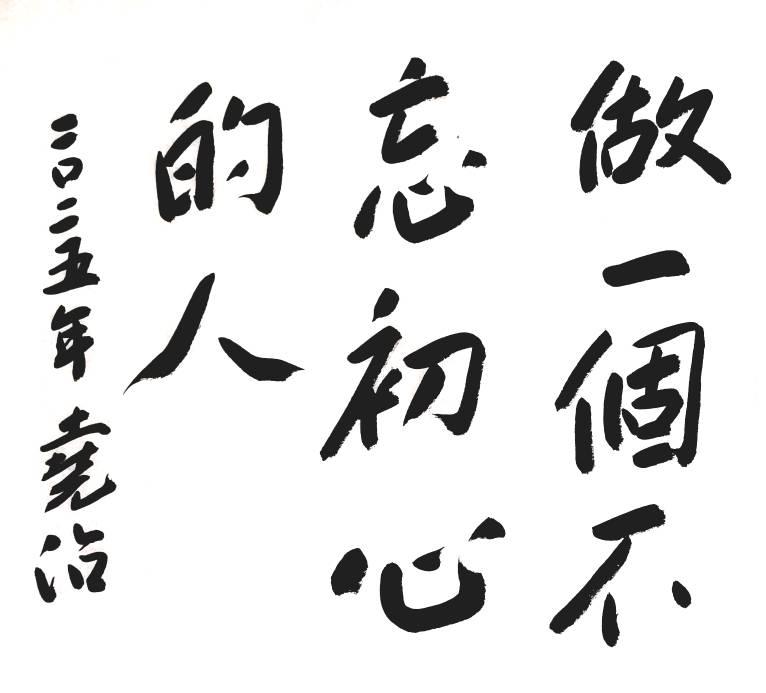 做一個不
忘初心
的人
二〇二五年 堯治